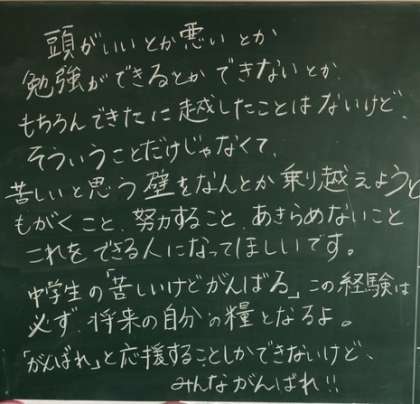 頭がいいとか悪いとか
勉強ができるとかできないとか、
もちろんできたに越したことはないけど、
そういうことだけじゃなくて、
苦しいと思う壁をなんとか乗り越えようと
もがくこと、努力すること、あきらめないこと
これをできる人になってほしいです。
中学生の「苦しいけどがんばる」この経験は
必ず、将来の自分の糧となるよ。
「がんばれ」と応援することしかできないけど、
みんながんばれ!!